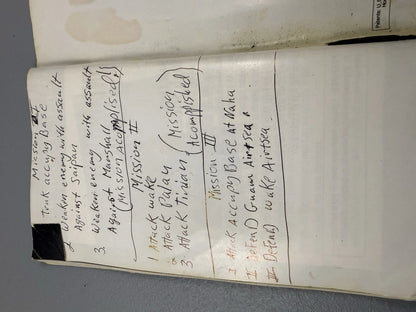 Mission I
Truk accupy Base
2 Weaken enemy with assault
Against Saipan
3. Weaken enemy with assault
Against Marshall
(Mission Acomplised!)
Mission II
1 Attack wake
2 Attack Palau
3 Attack Tinian (Mission
Acomplished)
Mission III
I Attack Accupy Base at Naha
II Defend Guam Air+sea.
III Defend wake Air+sea.